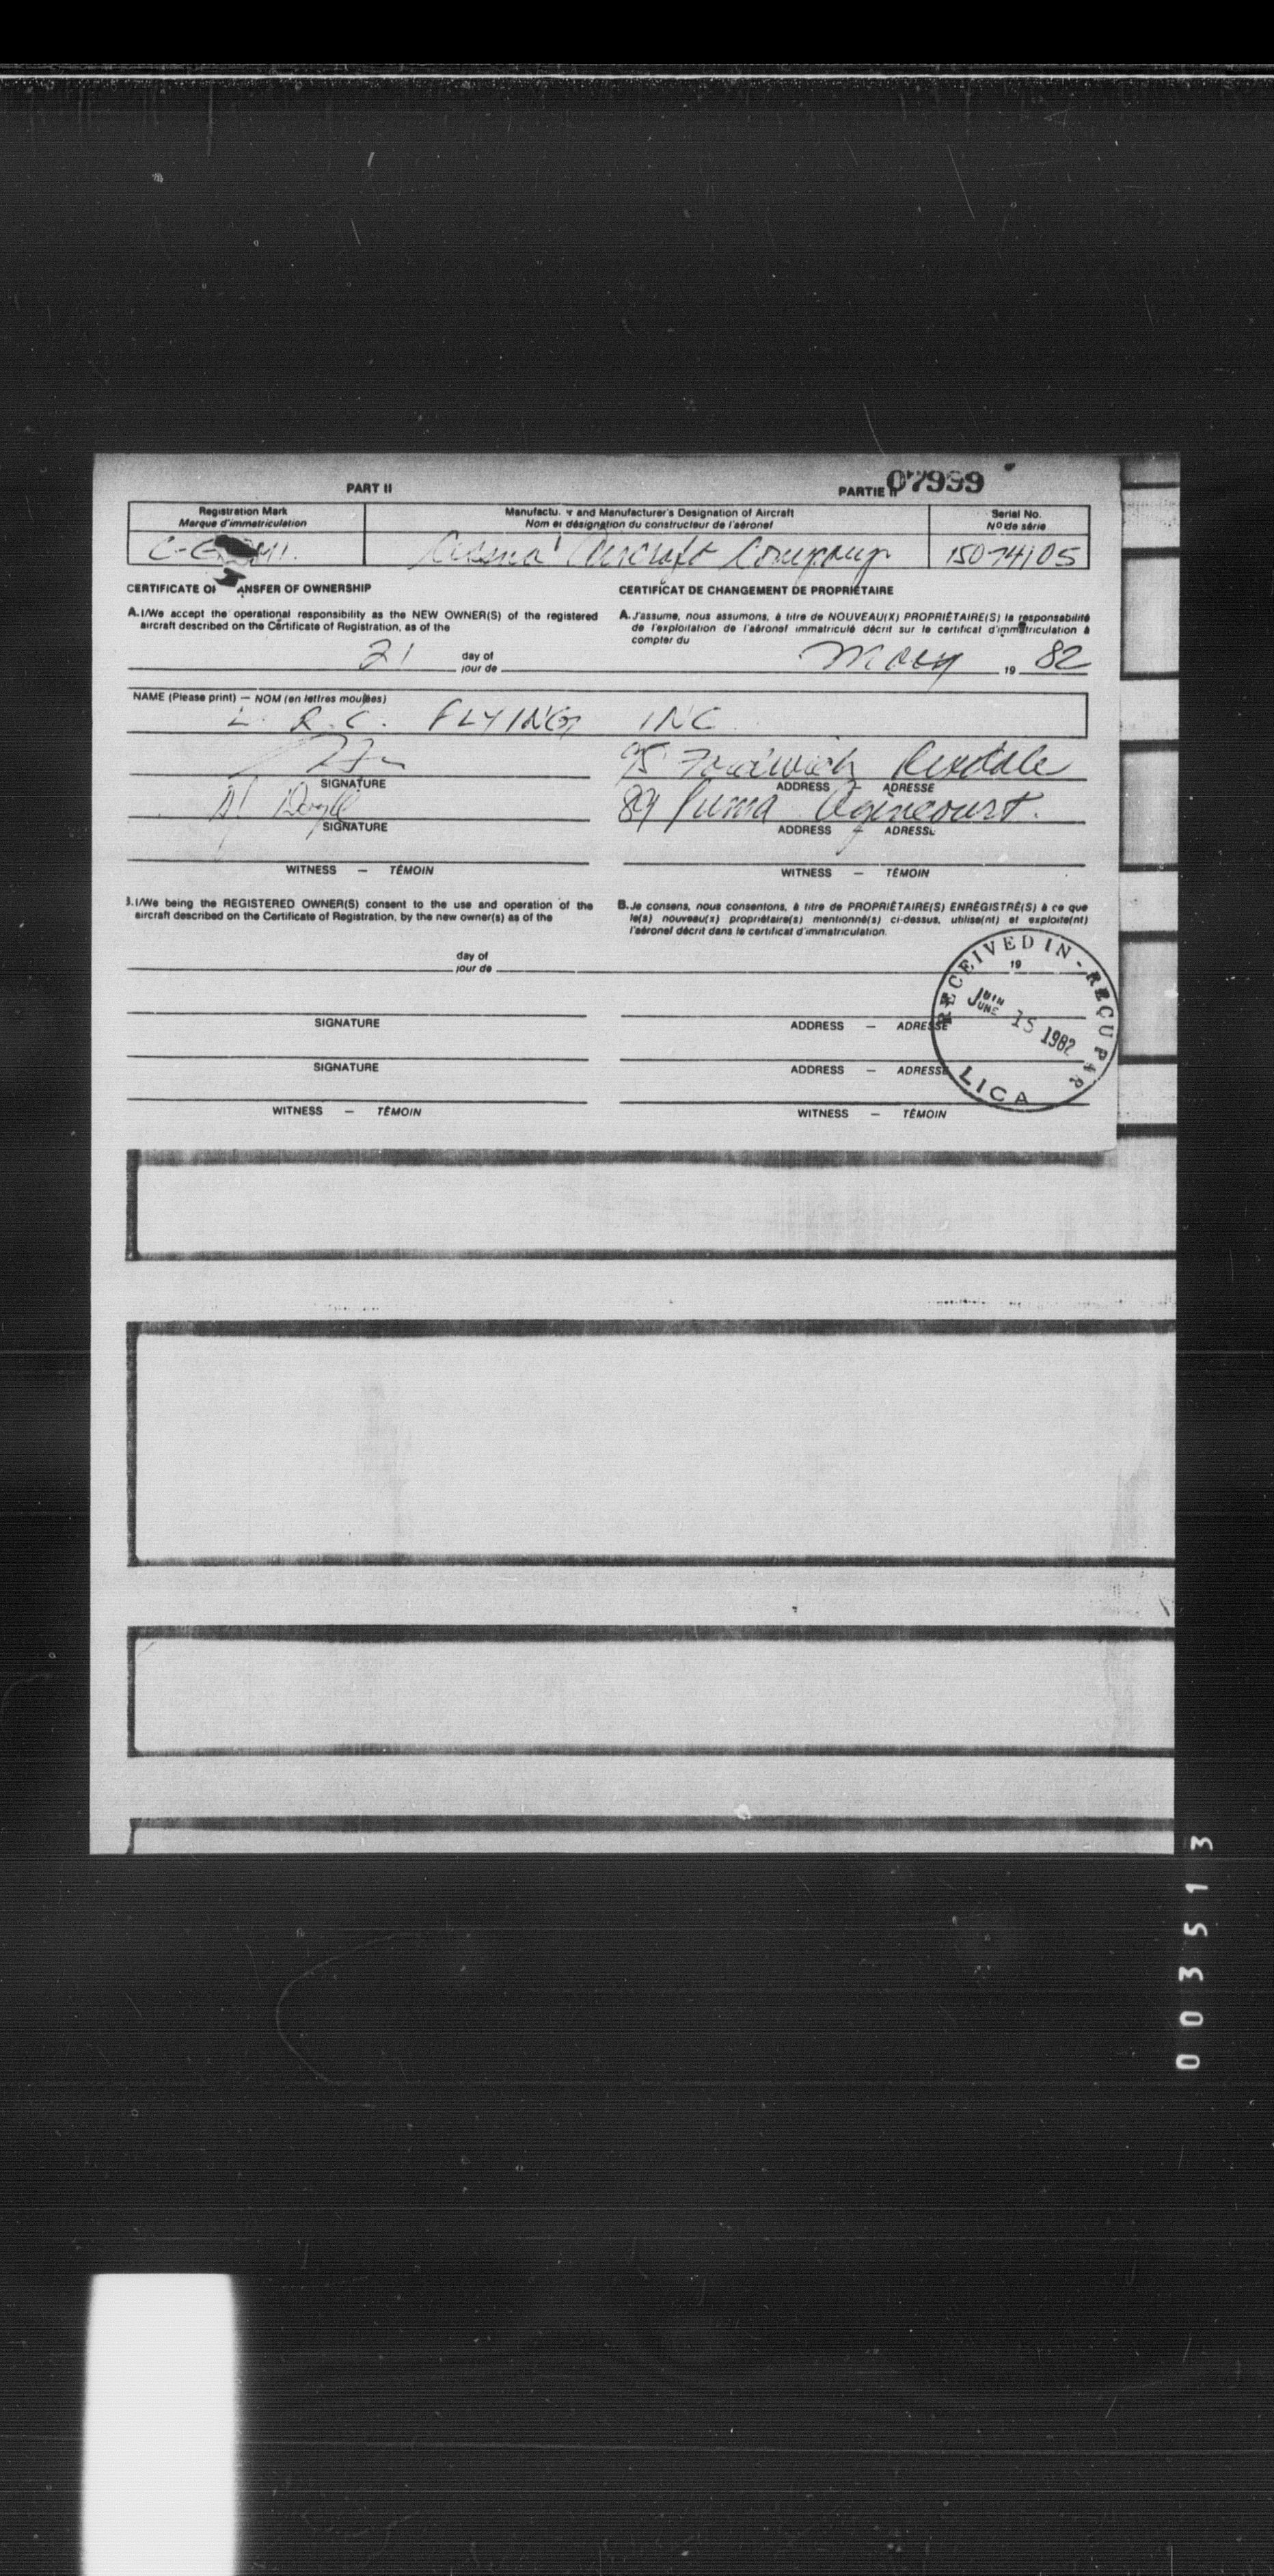 PART II PARTIE II 07999
Registration Mark Manufactu r and Manufacturer's Designation of Aircraft Serial No.
Marque d'immatriculation Nom et désignation du constructeur de l'aéronef No de série
Aircraft Company 15074105
CERTIFICATE OF ANSFER OF OWNERSHIP
CERTIFICAT DE CHANGEMENT DE PROPRIÉTAIRE
A. I/We accept the operational responsibility as the NEW OWNER(S) of the registered
aircraft described on the Certificate of Registration, as of the
A. J'assume, nous assumons, à titre de NOUVEAU(X) PROPRIÉTAIRE(S) la responsabilité
de l'exploitation de l'aéronef immatriculé décrit sur le certificat d'immatriculation à
compter du
21 day of May 19 82
jour de
NAME (Please print) — NOM (en lettres moulées)
L. R. C. FLYING INC
95 Rexdale
SIGNATURE ADDRESS — ADRESSE
89 Puma Agincourt.
SIGNATURE ADDRESS — ADRESSE
WITNESS — TÉMOIN WITNESS — TÉMOIN
I/We being the REGISTERED OWNER(S) consent to the use and operation of the
aircraft described on the Certificate of Registration, by the new owner(s) as of the
B. Je consens, nous consentons, à titre de PROPRIÉTAIRE(S) ENREGISTRÉ(S) à ce que
le(s) nouveau(x) propriétaire(s) mentionné(s) ci-dessus, utilise(nt) et exploite(nt)
l'aéronef décrit dans le certificat d'immatriculation.
day of 19
jour de
RECEIVED IN - REÇU PAR
JUIN
JUNE 15 1982
LICA
SIGNATURE ADDRESS — ADRESSE
SIGNATURE ADDRESS — ADRESSE
WITNESS — TÉMOIN WITNESS — TÉMOIN
003513